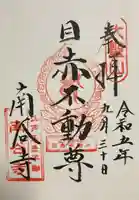 奉拝
令和五年
九月三十日
目赤不動尊
南谷寺